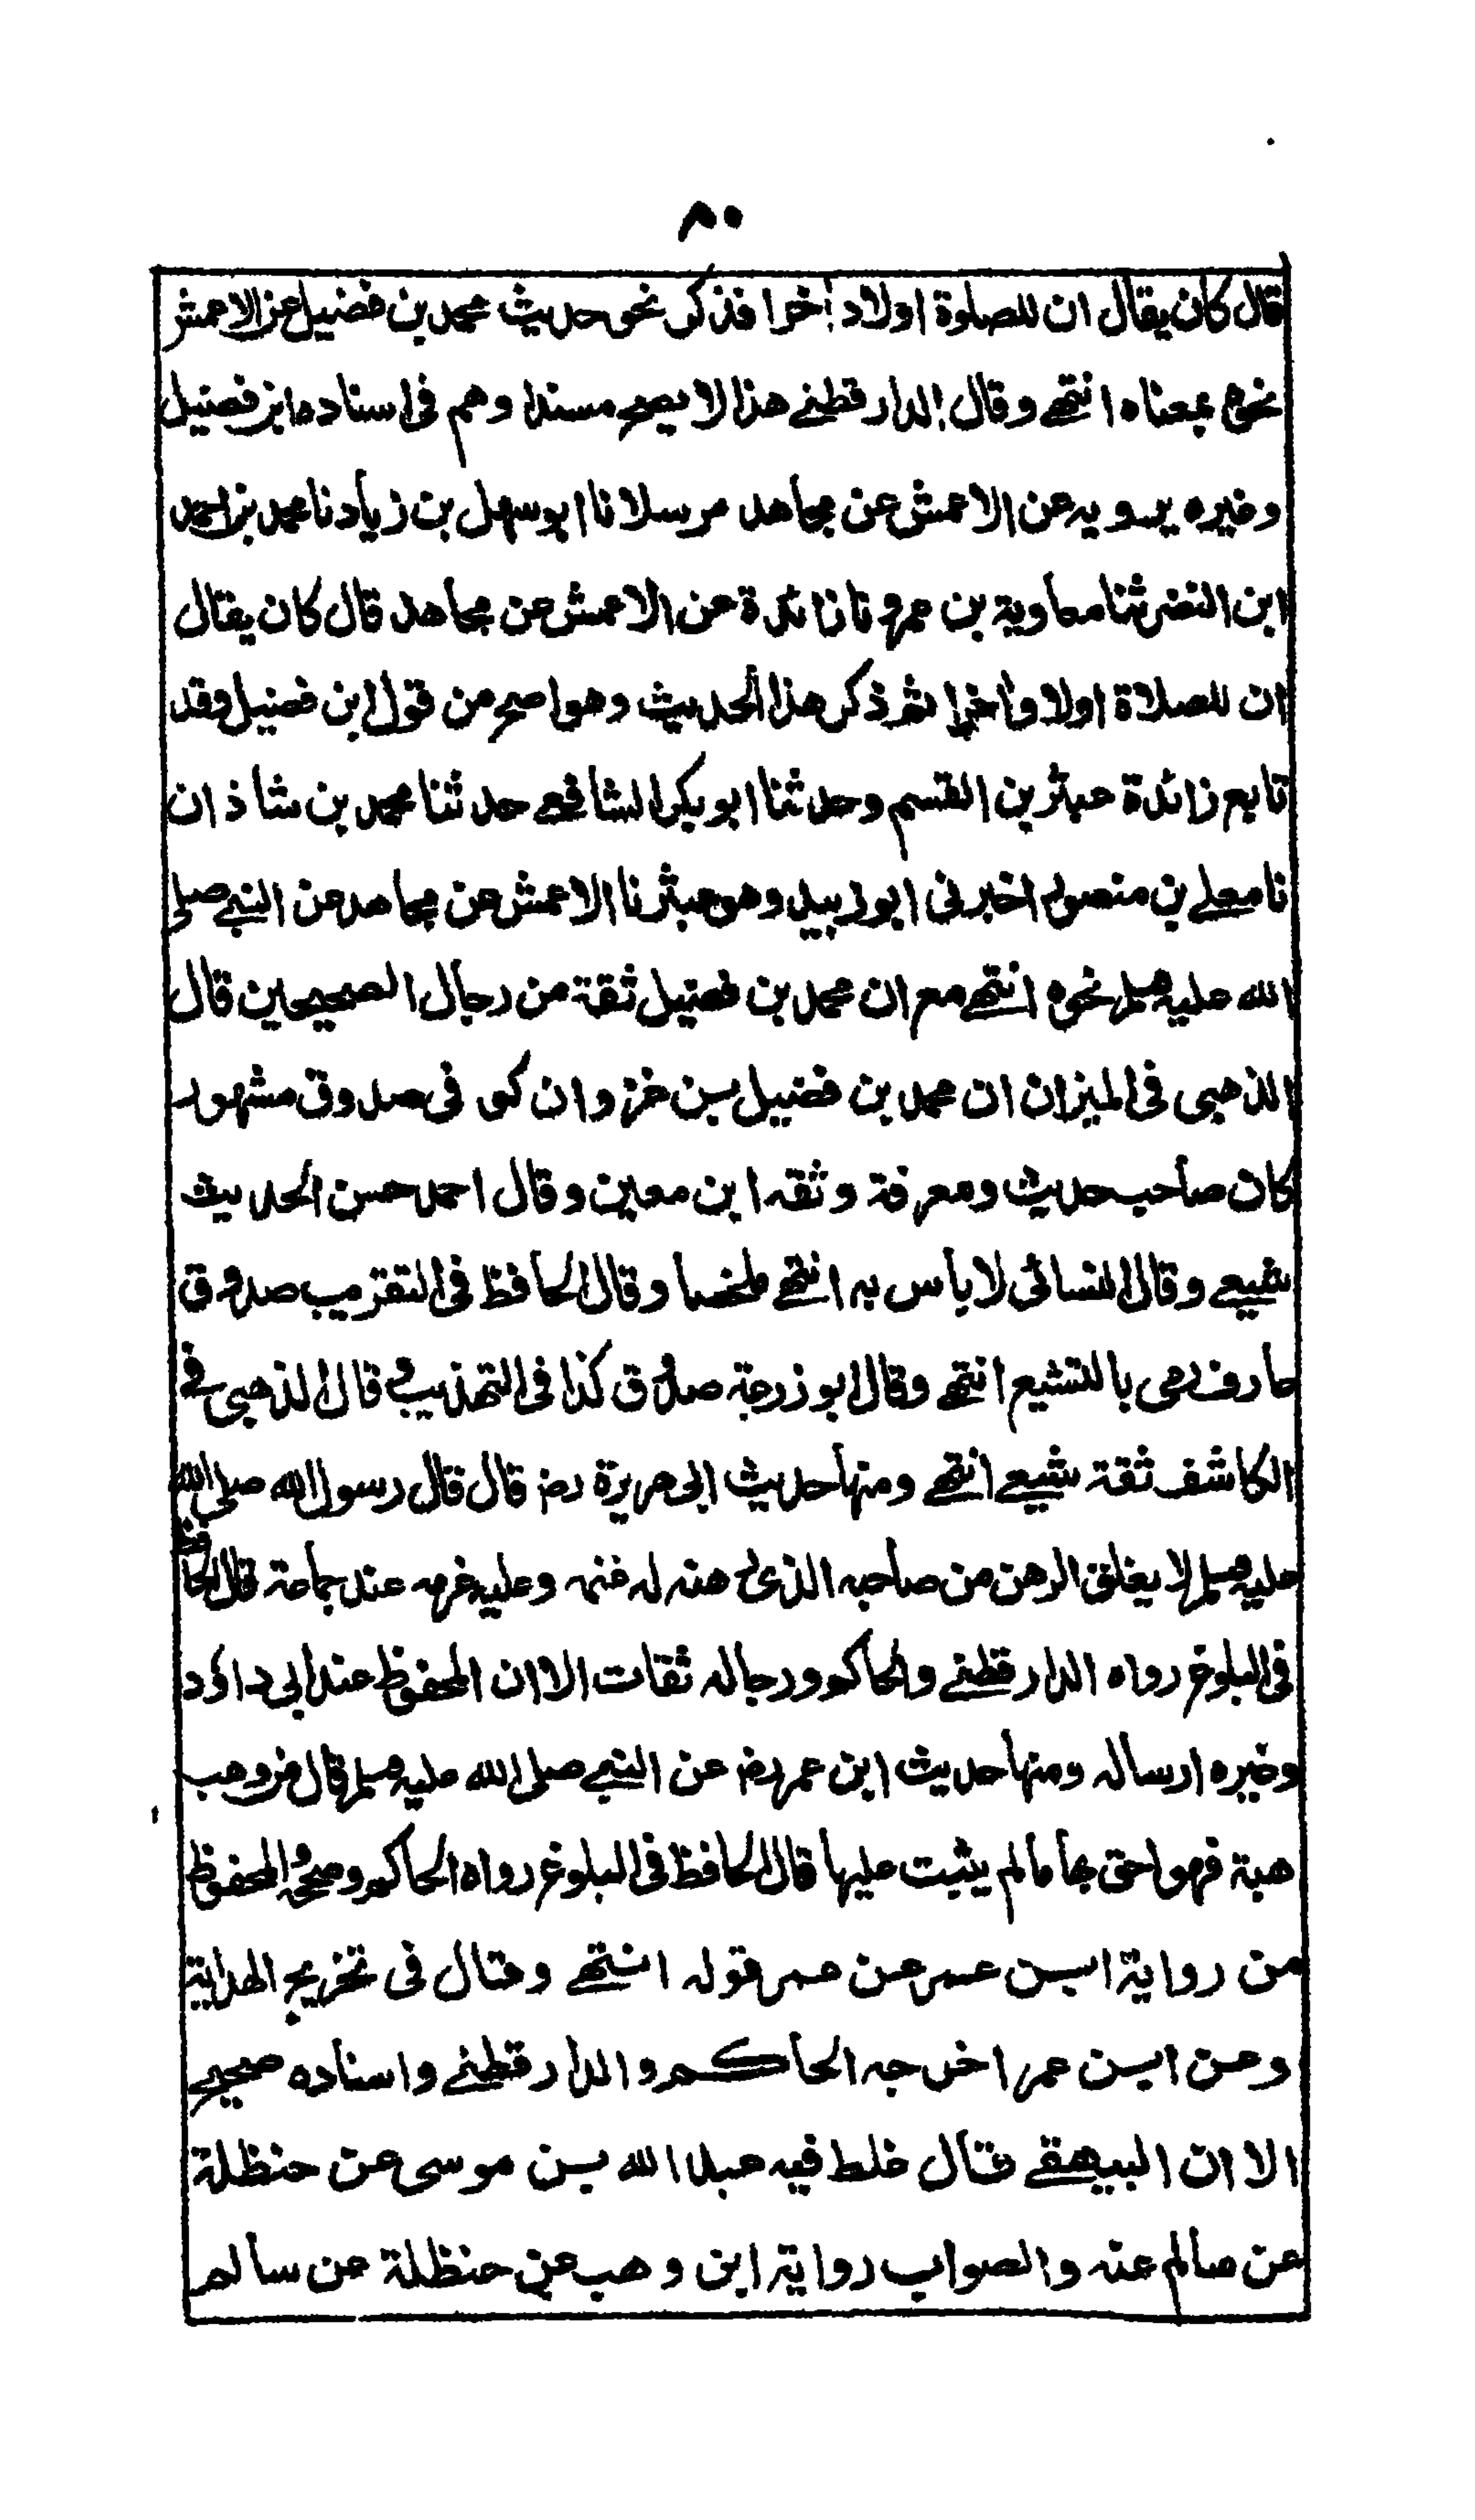 ٨٠
قال كان يقال ان للصلوة اولا و اخرا فذكر نحو حديث محمد بن فضيل عن الاعمش
نحوه بمعناه انتهى وقال الدارقطني هذا لا يصح مسندا وهم في اسناده ابن فضيل
وغيره يرويه عن الاعمش عن مجاهد مرسلا نا ابو سهل بن زياد نا محمد بن احمد
ابن النضر ثنا معاوية بن عمرو نا زائدة عن الاعمش عن مجاهد قال كان يقال
ان للصلاة اولا واخرا ثم ذكر هذا الحديث وهو اصح من قول ابن فضيل وقد
تابع زائدة عبثر بن القسم وحدثنا ابو بكر الشافعي حدثنا محمد بن شاذ ان
نا معلى بن منصور اخبرني ابو زبيد وهو عبثر نا الاعمش عن مجاهد عن النبي صلى
الله عليه وسلم نحوه انتهى مع ان محمد بن فضيل ثقة من رجال الصحيحين قال
الذهبي في الميزان ان محمد بن فضيل بن غزوان كوفي صدوق مشهور
كان صاحب حديث ومعرفة وثقه ابن معين وقال احمد حسن الحديث
شيعي وقال النسائي لا باس به انتهى ملخصا وقال الحافظ في التقريب صدوق
عارف رمي بالتشيع انتهى وقال ابو زرعة صدوق كذا في التهذيب وقال الذهبي في
الكاشف ثقة شيعي انتهى ومنها حديث ابي هريرة رض قال قال رسول الله صلى الله
عليه وسلم لا يغلق الرهن من صاحبه الذي رهنه له غنمه وعليه غرمه عند جماعة قال الحافظ
في البلوغ رواه الدارقطني والحاكم ورجاله ثقات الا ان المحفوظ عند ابي داؤد
وغيره ارساله ومنها حديث ابن عمر رض عن النبي صلى الله عليه وسلم قال من وهب
هبة فهو احق بها ما لم يثبت عليها قال الحافظ في البلوغ رواه الحاكم وصححه والمحفوظ
من رواية ابن عمر عن عمر قوله انتهى وقال في تخريج الهداية
وعن ابن عمر اخرجه الحاكم والدارقطني واسناده صحيح
الا ان البيهقي قال غلط فيه عبد الله بن موسى عن حنظلة
عن سالم عنه والصواب رواية ابن وهب عن حنظلة عن سالم